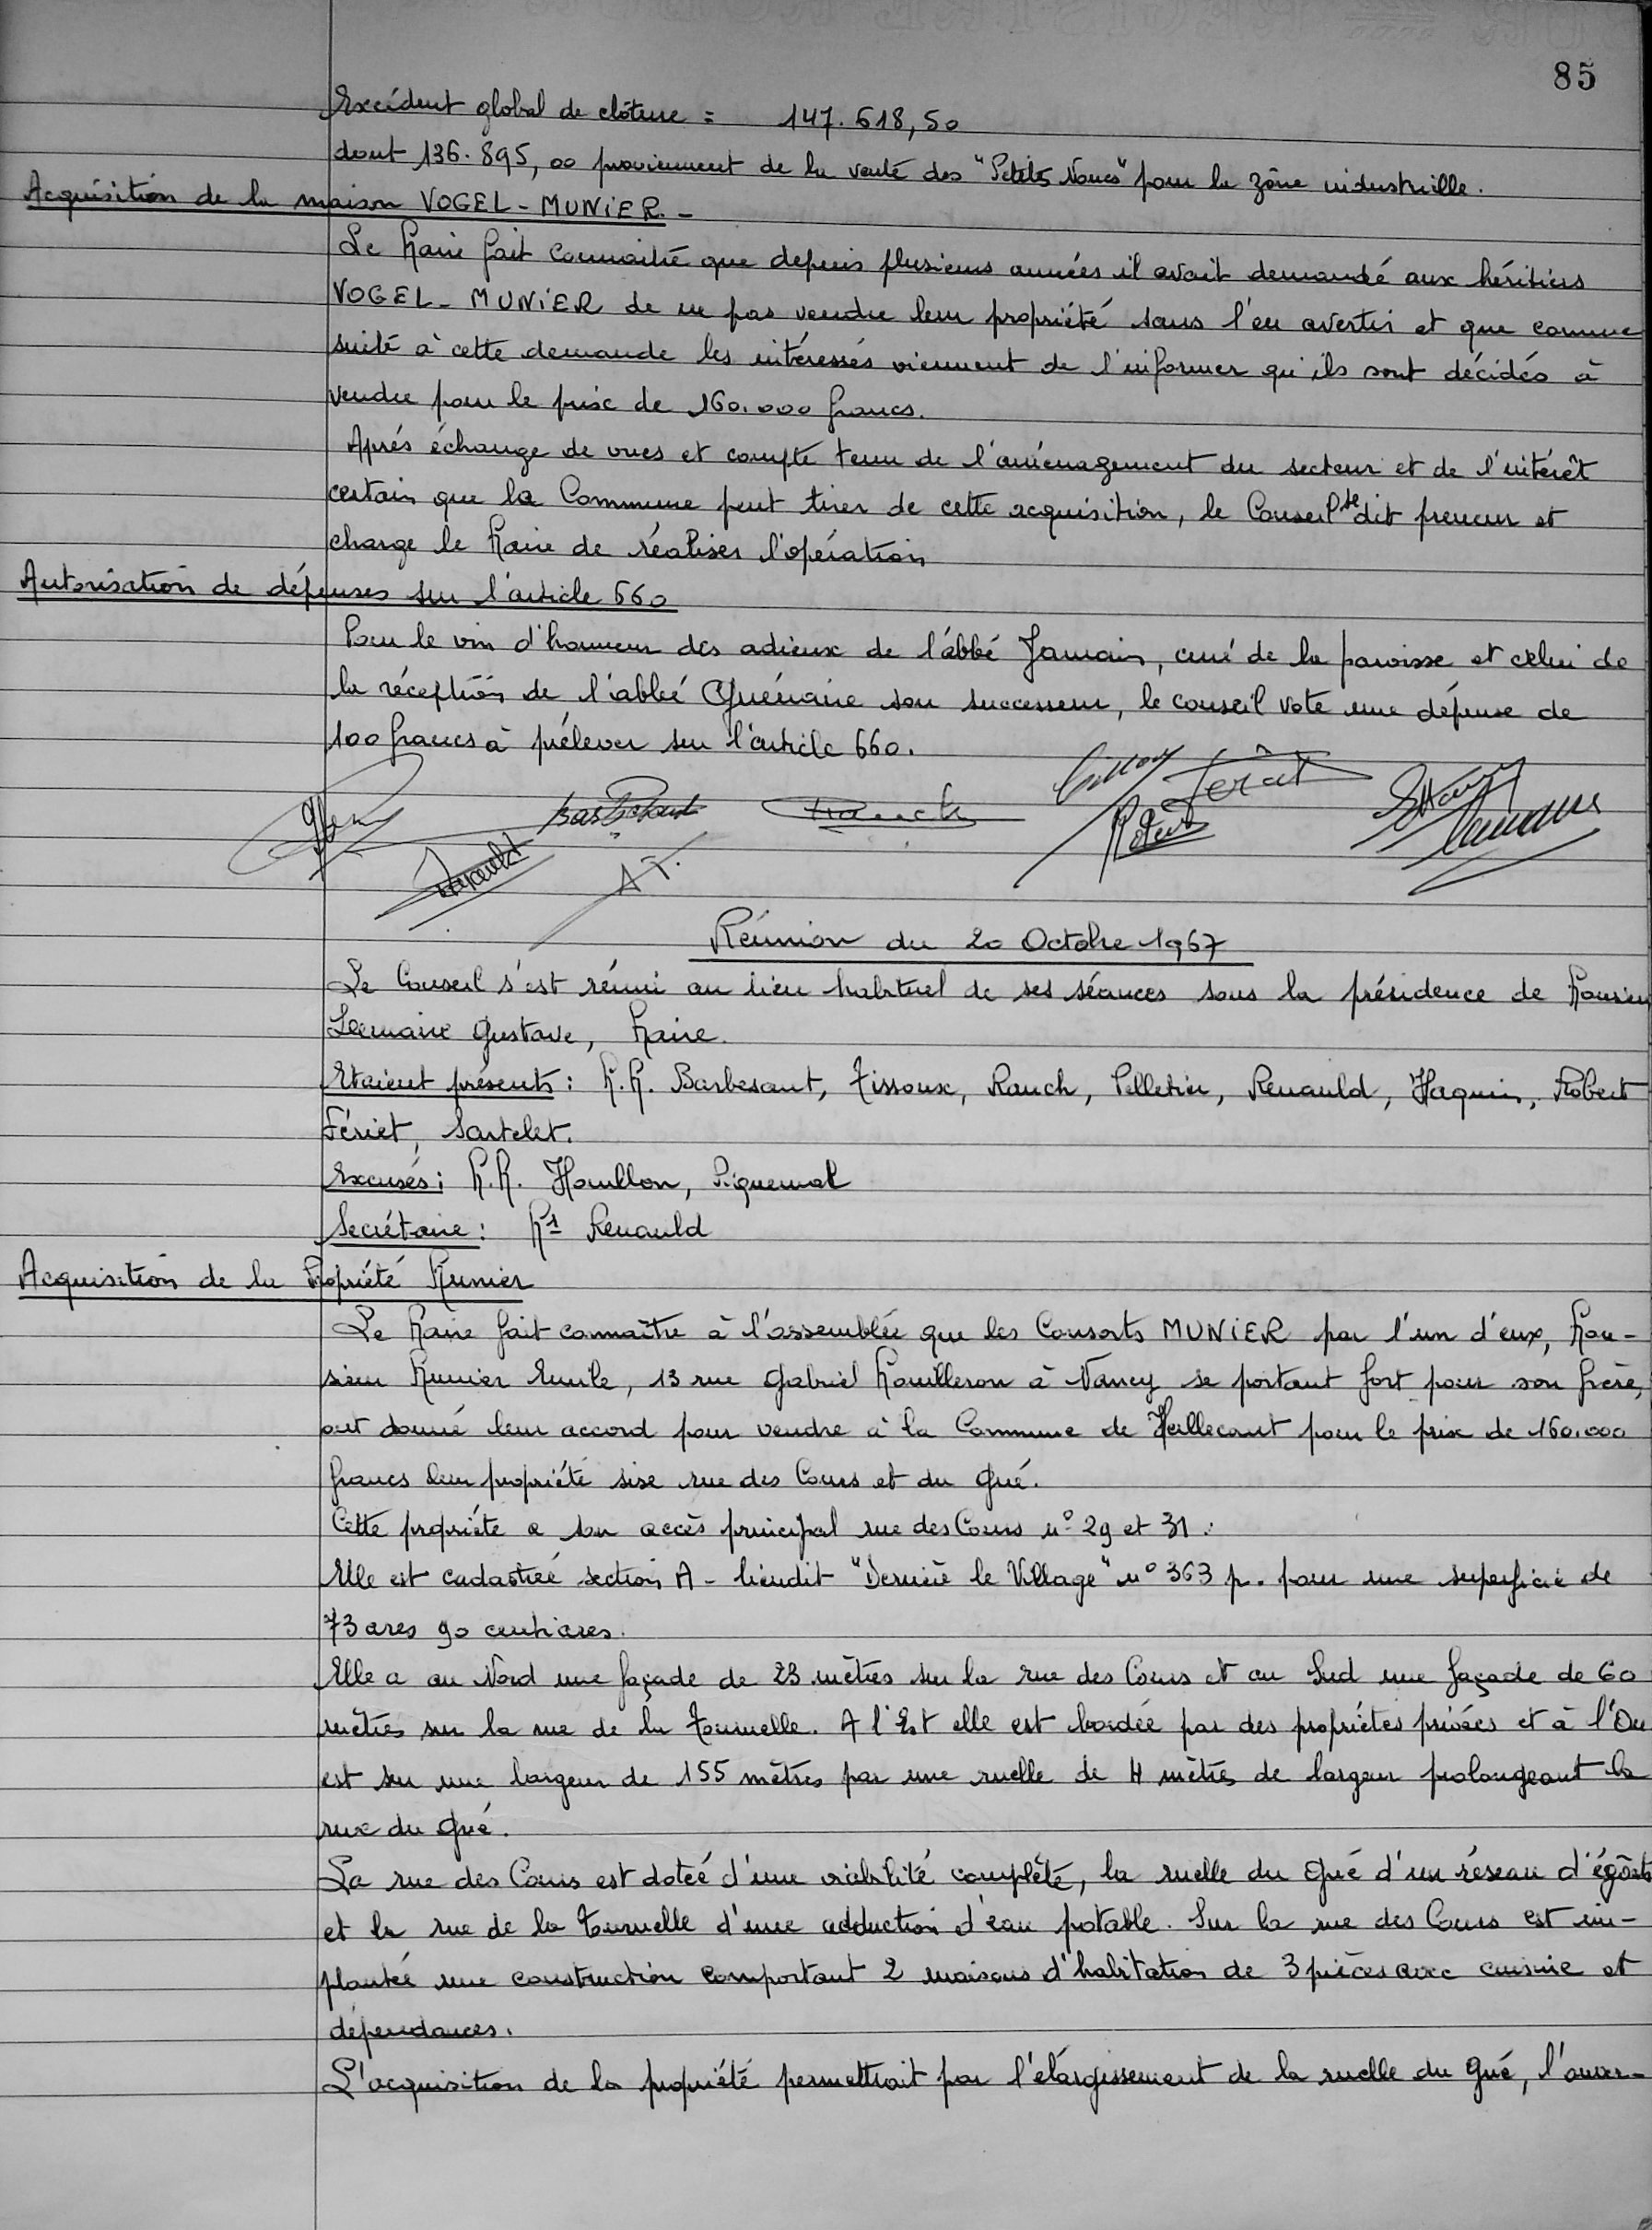 85
Excédent global de clôture = 147.618,50
dont 136.895,00 proviennent de la vente des "Petites Noues" pour la zône industrielle.
Acquisition de la maison VOGEL - MUNIER. -
Le Maire fait connaitre que depuis plusieurs années il avait demandé aux héritiers
VOGEL - MUNIER de ne pas vendre leur propriété sans l'en avertir et que comme
suite à cette demande les intéressés viennent de l'informer qu'ils sont décidés à
vendre pour le prix de 160.000 francs.
Aprés échange de vues et compte tenu de l'aménagement du secteur et de l'intérêt
certain que la Commune peut tirer de cette acquisition, le Conseil se dit preneur et
charge le Maire de réaliser l'opération
Autorisation de dépenses sur l'article 660
Pour le vin d'honneur des adieux de l'abbé Jamain, curé de la paroisse et celui de
la réception de l'abbé Guénaire son successeur, le conseil vote une dépense de
100 francs à prélever sur l'article 660.
Réunion du 20 Octobre 1967
Le Conseil s'est réuni au lieu habituel de ses séances sous la présidence de Monsieu
Lemaire Gustave, Maire.
Etaient présents : M.M. Barbesant, Tissoux, Rauch, Pelletier, Renauld, Haquin, Robert
Fériet, Sartelet.
Excusés : M.M. Houillon, Piquemal
Secrétaire : Mr Renauld
Acquisition de la Propriété Munier
Le Maire fait connaître à l'assemblée que les Consorts MUNIER par l'un d'eux, Mon-
sieur Munier Emile, 13 rue Gabriel Mouilleron à Nancy se portant fort pour son frère,
ont donné leur accord pour vendre à la Commune de Heillecourt pour le prix de 160.000
francs leur propriété sise rue des Cours et du Gué.
Cette propriéte a son accès principal rue des Cours n° 29 et 31.
Elle est cadastrée section A - lieudit "Derrière le Village" n° 363 p. pour une superficie de
73 ares 90 centiares.
Elle a au Nord une façade de 23 mètres sur la rue des Cours et au Sud une façade de 60
mètres sur la rue de la Tournelle. A l'Est elle est bordée par des propriétes privées et à l'Ou
est sur une largeur de 155 mètres par une ruelle de 4 mètres de largeur prolongeant la
rue du Gué.
La rue des Cours est dotée d'une viabilité complète, la ruelle du Gué d'un réseau d'égôuts
et la rue de la Tournelle d'une adduction d'eau potable. Sur la rue des Cours est im-
plantée une construction comportant 2 maisons d'habitation de 3 pièces avec cuisine et
dépendances.
L'acquisition de la propriété permettrait par l'élargissement de la ruelle du Gué, l'ouver-